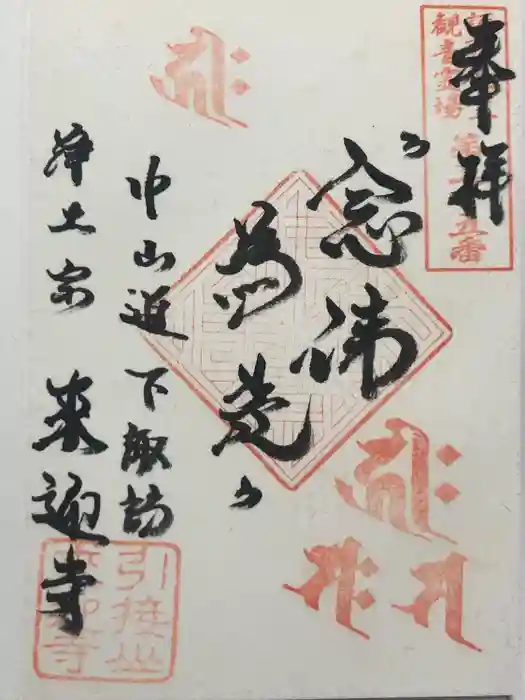 奉拝
観音霊場
五番
「念佛
為先」
中山道 下諏訪
浄土宗 来迎寺
引接山